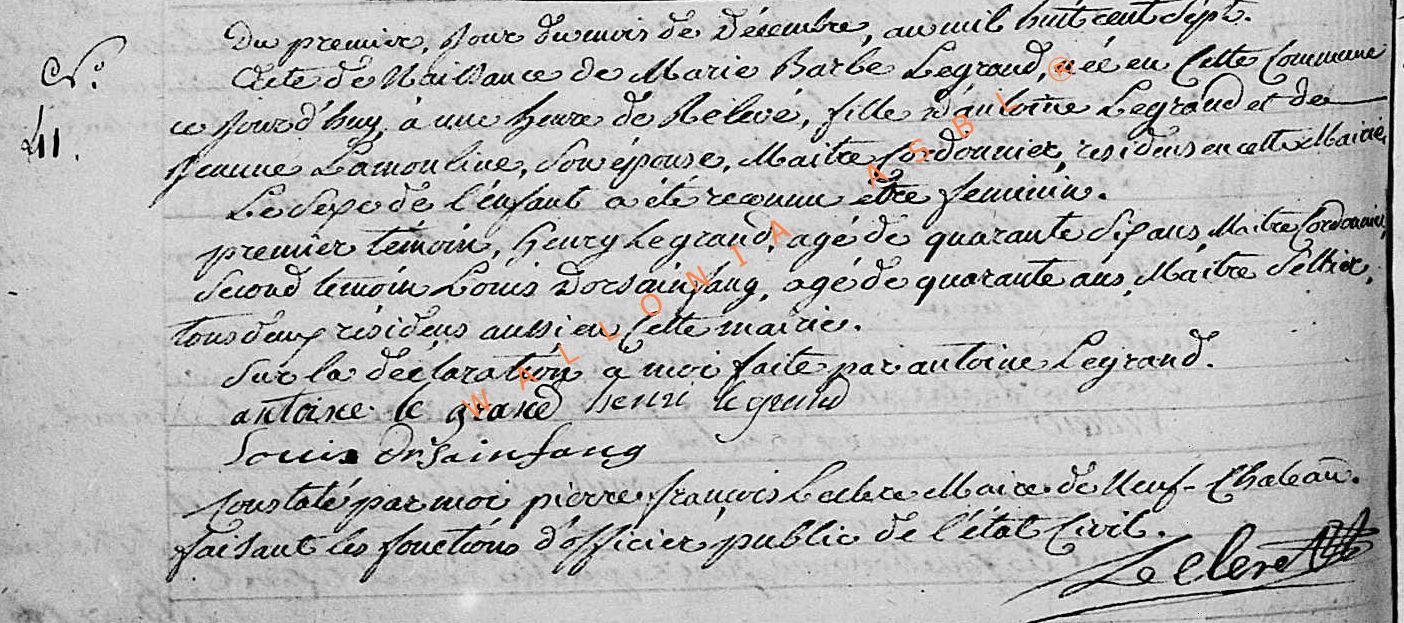 Du premier, Jour du mois de Décembre, an mil huit cent Sept.
N.º Acte de Naissance de Marie Barbe Legrand, née en Cette Commune
41. ce Jourd'huy, à une heure de Relevé, fille d'antoine Legrand et de
Jeanne Lamouline, Son épouse, Maitre Cordonnier, residens en cette Mairie,
Le Sexe de l'énfant a été reconnu être feminin.
premier temoin, henry Legrand, agé de quarante Six ans, Maitre Cordonnier,
Second temoin Louis Dorsainfang, agé de quarante ans, Maitre Sellier,
tous deux résidens aussi en Cette mairie.
Sur la déclaration à moi faite par antoine Legrand.
antoine le grand henri legrand
Louis Dorsainfang
Constaté par moi pierre françois Leclere Maire de Neuf-Chateau.
faisant les fonctions d'officier public de l'état Civil.
Leclere
WALLONIA ASBL ®